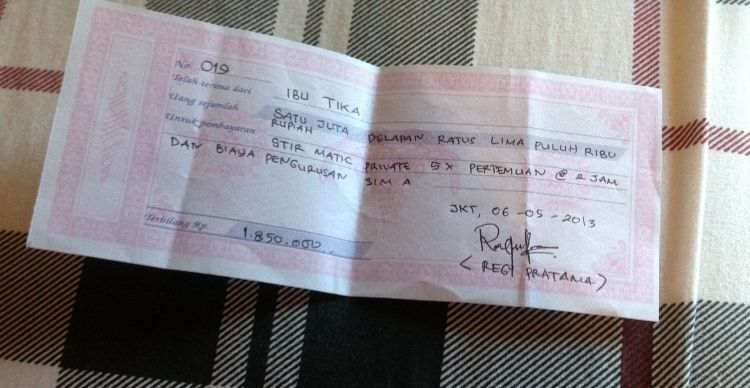 No. 019
Telah terima dari IBU TIKA
Uang sejumlah SATU JUTA DELAPAN RATUS LIMA PULUH RIBU
RUPIAH
Untuk pembayaran STIR MATIC PRIVATE 5X PERTEMUAN @ 2 JAM
DAN BIAYA PENGURUSAN SIM A
JKT, 06-05-2013
Terbilang Rp. 1.850.000
( REGY PRATAMA )